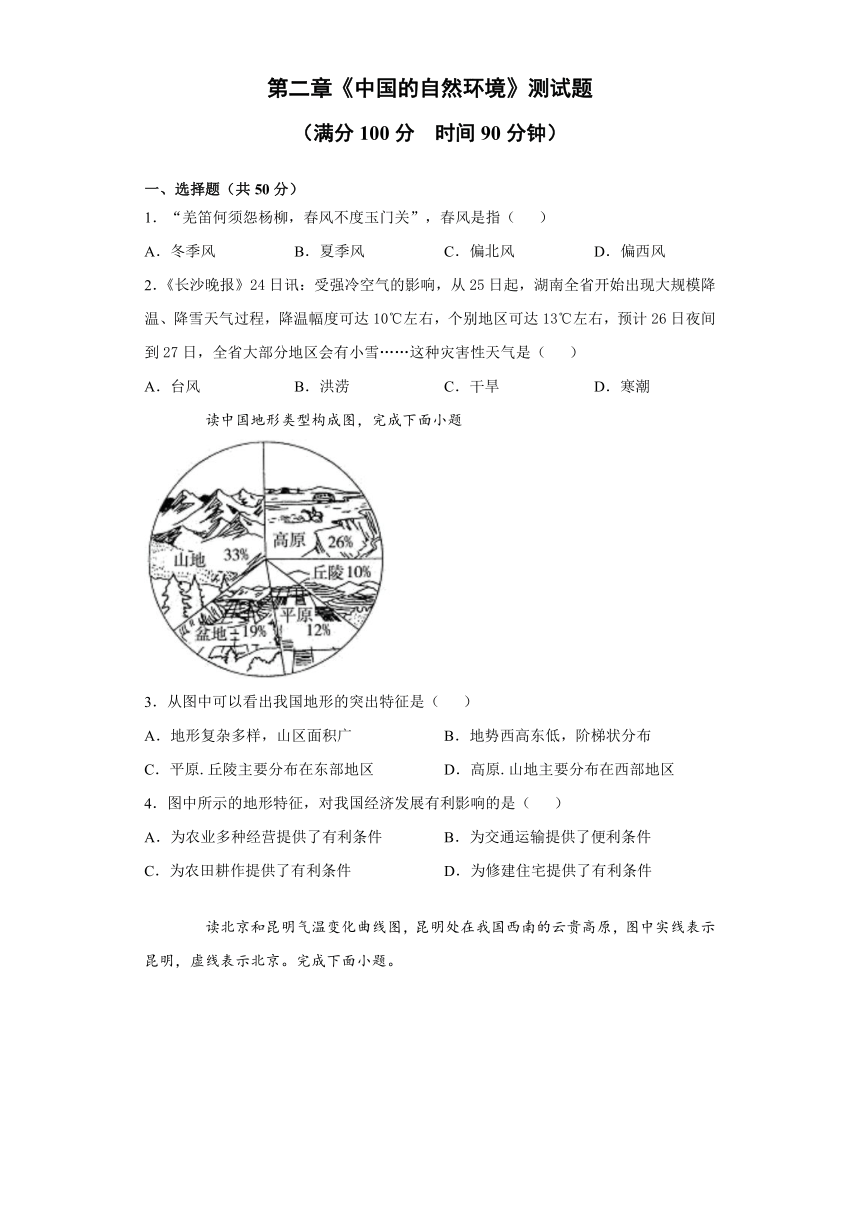 第二章《中国的自然环境》测试题
（满分 100 分　时间 90 分钟）
一、选择题（共 50 分）
1．“羌笛何须怨杨柳，春风不度玉门关”，春风是指（　　）
A．冬季风　　B．夏季风　　C．偏北风　　D．偏西风
2.《长沙晚报》24 日讯：受强冷空气的影响，从 25 日起，湖南全省开始出现大规模降
温、降雪天气过程，降温幅度可达 10℃左右，个别地区可达 13℃左右，预计 26 日夜间
到 27 日，全省大部分地区会有小雪……这种灾害性天气是（　　）
A．台风　　B．洪涝　　C．干旱　　D．寒潮
读中国地形类型构成图，完成下面小题
高原 26%
山地 33%
丘陵 10%
平原
12%
盆地 19%
3．从图中可以看出我国地形的突出特征是（　　）
A．地形复杂多样，山区面积广　　B．地势西高东低，阶梯状分布
C．平原.丘陵主要分布在东部地区　　D．高原.山地主要分布在西部地区
4．图中所示的地形特征，对我国经济发展有利影响的是（　　）
A．为农业多种经营提供了有利条件　　B．为交通运输提供了便利条件
C．为农田耕作提供了有利条件　　D．为修建住宅提供了有利条件
读北京和昆明气温变化曲线图，昆明处在我国西南的云贵高原，图中实线表示
昆明，虚线表示北京。完成下面小题。